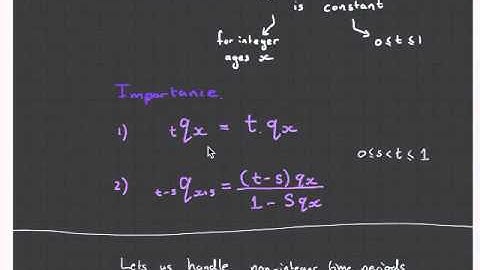 is constant
for integer ages x
0 ≤ t ≤ 1
Importance.
1) ₜqₓ = t. qₓ
2) ₜ₋ₛqₓ₊ₛ = (t-s) qₓ / 1 - S qₓ
0 ≤ s < t ≤ 1
Lets us handle non-integer time periods